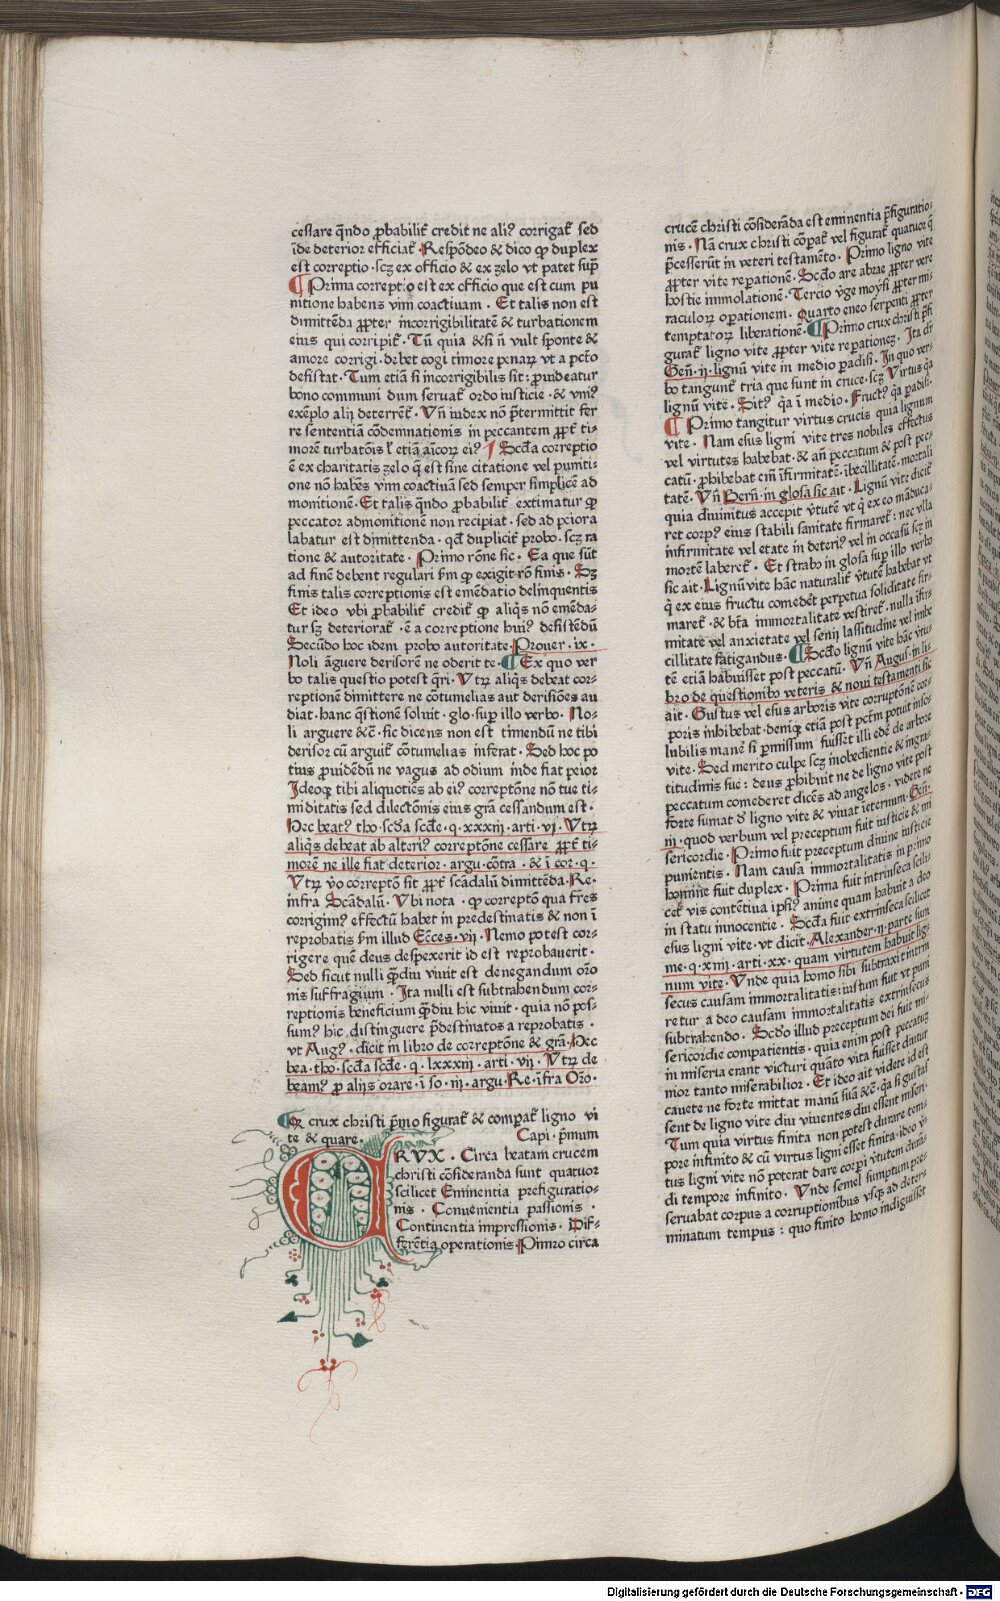 cessare q̄ndo ꝓbabilit̄ credit̄ ne aliꝰ corrigat̄ sed
īde deterior efficiat̄. Respōdeo & dico ꝙ duplex
est correptio . scꝫ ex officio & ex zelo vt patet sup̄
¶ Prima correptio est ex officio que est cum pu
nitione habens vim coactiuam . Et talis non est
dimittēda ꝓpter incorrigibilitatē & turbationem
eius qui corripit̄ . Tū quia &si n̄ vult sponte &
amore corrigi . debet cogi timore penaꝝ vt a pctō
desistat . Tum etiā si incorrigibilis sit : ꝓuideatur
bono communi dum seruat̄ ordo iusticie . & vniꝰ
exēplo alij deterrēt̄ . Vn̄ iudex nō p̄termittit fer
re sententiā cōdemnationis in peccantem ꝓpt̄ ti⸗
morē turbatōis l̄ etiā aīcoꝝ eiꝰ Scd̄a correptio
ē ex charitatis zelo q̄ est sine citatione vel puniti⸗
one nō habēs vim coactiuā sed semper simplicē ad
monitionē . Et talis q̄ndo ꝓbabilit̄ extimatur ꝙ
peccator admonitionē non recipiat . sed ad peiora
labatur est dimittenda . qd̄ duplicit̄ probo . scꝫ ra
tione & autoritate . Primo rōne sic . Ea que sūt
ad finē debent regulari s̄m ꝙ exigit rō finis . Sꝫ
finis talis correptionis est emēdatio delinquentis
Et ideo vbi ꝓbabilit̄ credit̄ ꝙ aliq̄s nō emēda⸗
tur sꝫ deteriorat̄ . ē a correptione huiꝰ desistēdū
Secūdo hoc idem probo autoritate . Prouer . ix .
Noli āguere derisorē ne oderit te . ¶ Ex quo ver
bo talis questio potest q̄ri . Vtꝝ aliq̄s debeat cor⸗
reptionē dimittere ne cōtumelias aut derisiōes au
diat . hanc q̄stionē soluit . glo . sup̄ illo verbo . No⸗
li arguere &c̄ . sic dicens non est timendū ne tibi
derisor cū arguit̄ cōtumelias inferat . Sed hoc po
tius ꝓuidēdū ne vagus ad odium inde fiat peior
Ideoqꝫ tibi aliquotiēs ab eiꝰ correptōne nō tue ti⸗
miditatis sed dilectōnis eius grā cessandum est .
Hec beatꝰ tho . scd̄a scd̄e . q . xxxiij . arti . vj . Vtꝝ
aliq̄s debeat ab alteriꝰ correptōne cessare ꝓpt̄ ti⸗
morē ne ille fiat deterior . argu . cōtra . & ī cor . q .
Vtꝝ v̄o correptō sit ꝓpt̄ scādalū dimittēda . Re .
infra Scādalū . Vbi nota . ꝙ correptō qua fr̄es
corrigimꝰ effectū habet in predestinatis & non ī
reprobatis s̄m illud Ec̄ces . vij . Nemo potest cor⸗
rigere quē deus despexerit id est reprobauerit .
Sed sicut nulli q̄ꝫdiu viuit est denegandum oro
nis suffragium . Ita nulli est subtrahendum cor⸗
reptionis beneficium q̄ꝫdiu hic viuit . quia nō pos⸗
sumꝰ hic distinguere p̄destinatos a reprobatis .
vt Augꝰ . dicit in libro de correptōne & grā . Hec
bea . tho . scd̄a scd̄e . q . lxxxiij . arti . vij . Vtꝝ de
beamꝰ ꝓ alijs orare . ī so . iij . argu . Re . īfra Orō .
Qꝫ crux christi p̄mo figurat̄ & compat̄ ligno vi
te & quare . Capi . p̄mum
CRVX . Circa beatam crucem
christi cōsideranda sunt quatuor
scilicet Eminentia prefiguratio⸗
nis . Conuenientia passionis .
Continentia impressionis . Dif⸗
ferētia operationis . Primo circa
crucē christi cōsiderāda est eminentia p̄figuratio⸗
nis . Nā crux christi cōpat̄ vel figurat̄ quatuor q̄
p̄cesserūt in veteri testamēto . Primo ligno vite
ꝓpter vite repationē . Scd̄o are abrae ꝓpter vere
hostie immolationē . Tercio v̄ge moysi ꝓpter mi⸗
raculoꝝ oꝑationem . Quarto eneo serpenti ꝓpter
temptatoꝝ liberationē . ¶ Primo crux christi p̄fi
gurat̄ ligno vite ꝓpter vite repationeꝫ . Ita dr̄
Geñ . ij . lignū vite in medio padisi . In quo ver⸗
bo tangunt̄ tria que sunt in cruce . scꝫ Virtus q̄a
lignū vite . Sitꝰ q̄a ī medio . Fructꝰ q̄a padisi .
¶ Primo tangitur virtus crucis quia lignum
vite . Nam esus ligni vite tres nobiles effectus
vel virtutes habebat . & an̄ peccatum & post pec⸗
catū . ꝓhibebat em̄ īfirmitatē . ībecillitatē . mortali
tatē . Vn̄ Berñ . in glosa sic ait . Lignū vite dicit̄
quia diuinitus accepit v̄tutē vt q̄ ex eo māduca⸗
ret corpꝰ eius stabili sanitate firmaret̄ : nec vlla
infirmitate vel etate in deteriꝰ vel in occasū scꝫ in
mortē laberet̄ . Et strabo in glosa sup̄ illo verbo
sic ait . Lignū vite hāc naturalit̄ v̄tutē habebat vt
q̄ ex eius fructu comedēt perpetua soliditate fir⸗
maret̄ . & btā immortalitate vestiret̄ . nulla īfir⸗
mitate vel anxietate vel senij lassitudine vel imbe
cillitate fatigandus . ¶ Scd̄o lignū vite hāc v̄tu⸗
tē etiā habuisset post peccatū . Vn̄ Augus . in li⸗
bro de questionibꝰ veteris & noui testamenti sic
ait . Gustus vel esus arboris vite corruptōnē cor⸗
poris inhibebat . deniqꝫ etiā post pctm̄ potuit insc⸗
lubilis manē si ꝑmissum fuisset illi edē de arbore
vite . Sed merito culpe scꝫ inobedientie & ingra⸗
titudinis sue : deus ꝓhibuit ne de ligno vite post
peccatum comederet dicēs ad angelos . videte ne
forte sumat d̄ ligno vite & viuat īeternum . Geñ .
iij . quod verbum vel preceptum fuit iusticie & mi
sericordie . Primo fuit preceptum diuine iusticie
punientis . Nam causa immortalitatis in primo
homine fuit duplex . Prima fuit intrinseca scili⸗
cet vis contētiua ipsiꝰ anime quam habuit a deo
in statu innocentie . Scd̄a fuit extrinseca scilicet
esus ligni vite . vt dicit . Alexander . ij . parte sum
me . q . xiij . arti . xx . quam virtutem habuit lig⸗
num vite . Vnde quia homo sibi subtraxit intrin
secus causam immortalitatis : iustum fuit vt puni
retur a deo causam immortalitatis extrinsecus
subtrahendo . Scd̄o illud preceptum dei fuit mi⸗
sericordie compatientis . quia enim post peccatuꝫ
in miseria erant victuri quāto vita fuisset diutur
nior tanto miserabilior . Et ideo ait videte id est
cauete ne forte mittat manū suā &c̄ . q̄a si gustas
sent de ligno vite diu viuentes diu essent miseri .
Tum quia virtus finita non potest durare tem⸗
pore infinito & cū virtus ligni esset finita . ideo v̄⸗
tus ligni vite nō poterat dare corpi v̄tutem durā⸗
di tempore infinito . Vnde semel sumptum pre⸗
seruabat corpus a corruptionibus vsqꝫ ad deter⸗
minatum tempus : quo finito homo indiguisset
Digitalisierung gefördert durch die Deutsche Forschungsgemeinschaft - DFG